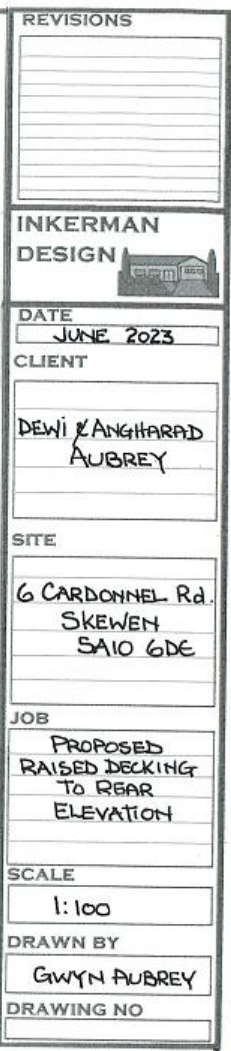 REVISIONS
INKERMAN
DESIGN
DATE
JUNE 2023
CLIENT
DEWI & ANGHARAD
AUBREY
SITE
6 CARDONNEL Rd.
SKEWEN
SA10 6DE
JOB
PROPOSED
RAISED DECKING
TO REAR
ELEVATION
SCALE
1:100
DRAWN BY
GWYN AUBREY
DRAWING NO